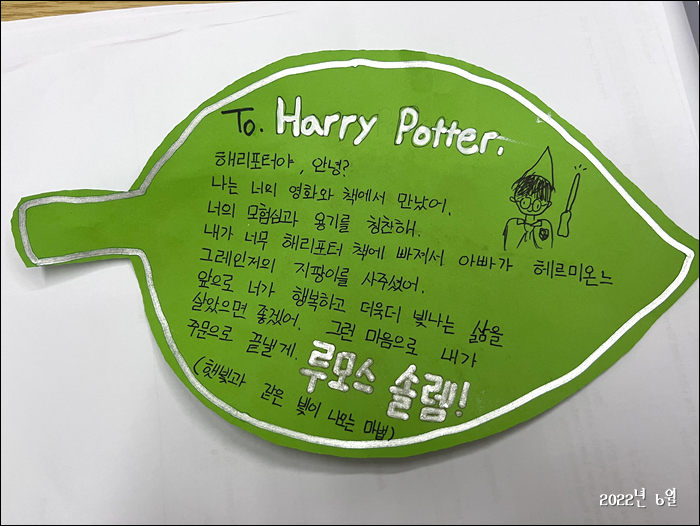 To. Harry Potter.
해리포터야, 안녕?
나는 너의 영화와 책에서 만났어.
너의 모험심과 용기를 칭찬해.
내가 너무 해리포터 책에 빠져서 아빠가 헤르미온느
그레인저의 지팡이를 사주셨어.
앞으로 너가 행복하고 더욱더 빛나는 삶을
살았으면 좋겠어. 그런 마음으로 내가
주문으로 끝낼게. 루모스 솔렘!
(햇빛과 같은 빛이 나오는 마법)
2022년 6월